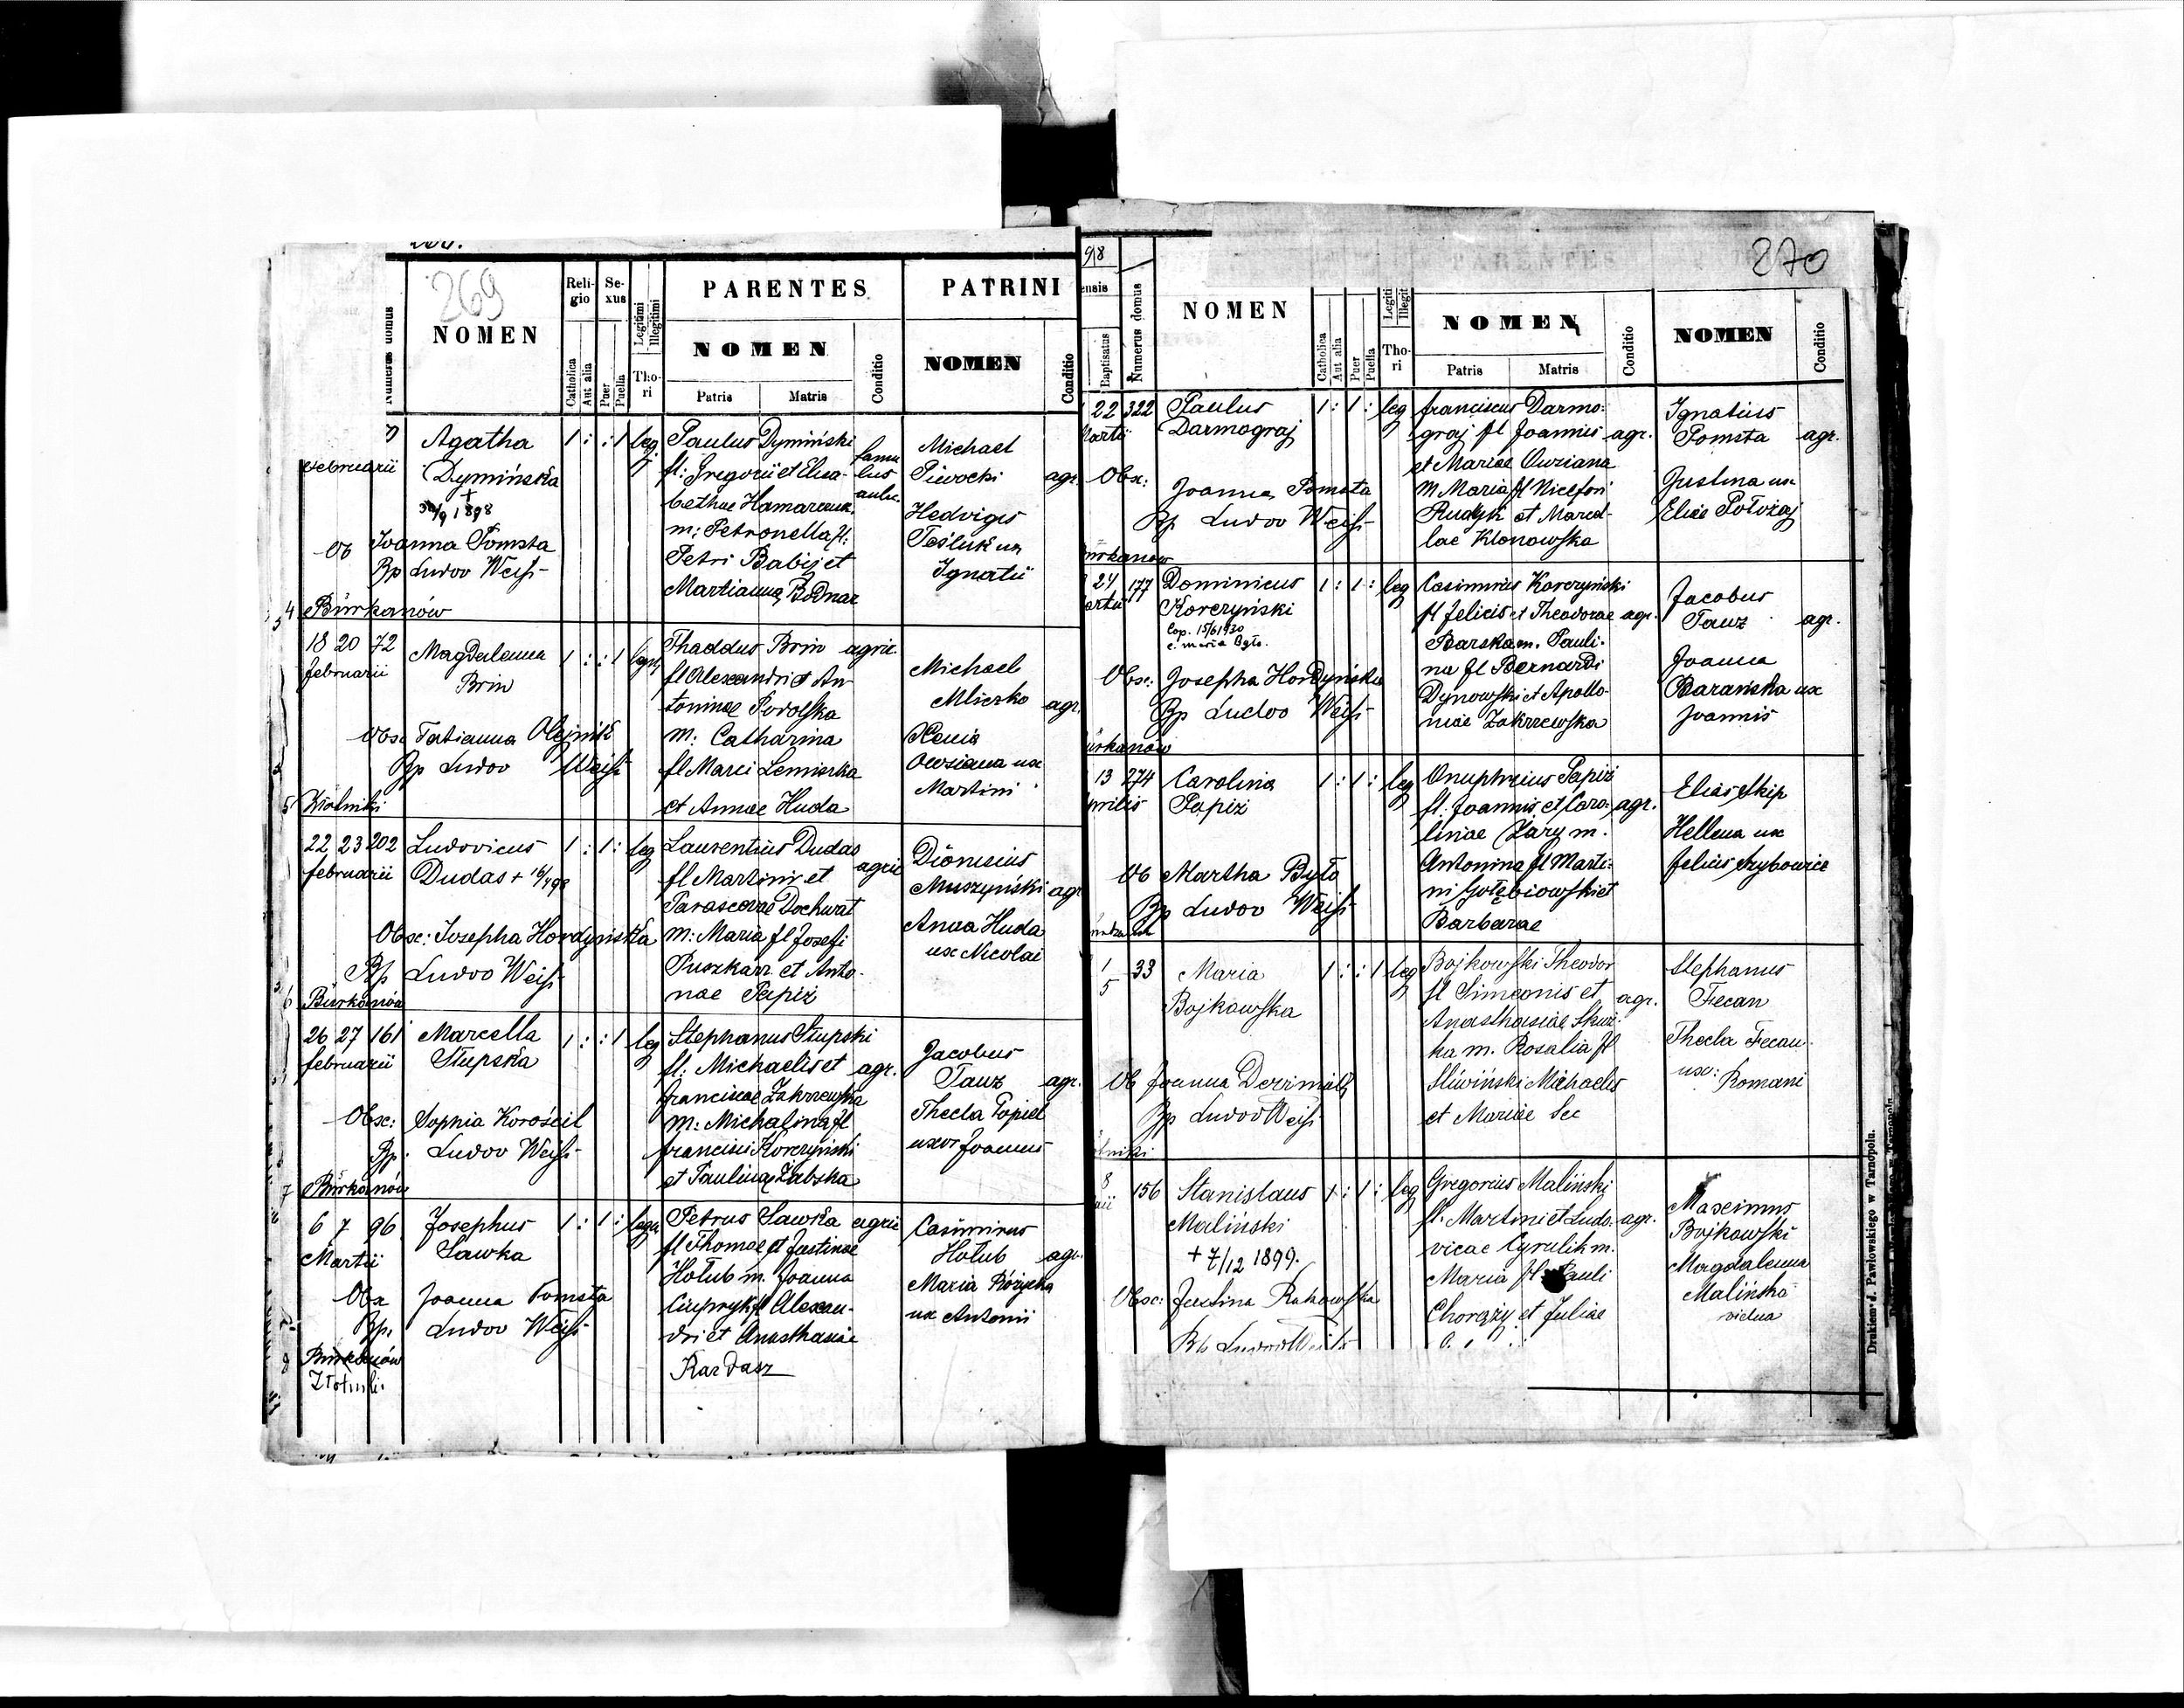 269
Numerus domus
NOMEN
Religio
Sexus
Catholica
Aut alia
Puer
Puella
Legitimi
Illegitimi
Thori
PARENTES
NOMEN
Patris
Matris
Conditio
PATRINI
NOMEN
Conditio
februarii
Agatha
Dymińska
+
/9 1898
1 : : 1 leg
Paulus Dymiński
fl: Gregorii et Elisa-
bethae Hamarczuk
m: Petronella fl:
Petri Babij et
Martianna Bodnar
famu
lus
aulic.
Michael
Piwocki agr.
Hedvigis
Tesluk ux
Ignatii
Ob Joanna Pomsta
Bp Ludov Weiss
4 Burkanów
18 20 72
februarii
Magdalenna
Brin
1 : : 1 legit
Thaddus Brin agric.
fl Alexandri et An-
toninae Podolska
m: Catharina
fl Marci Lemiszka
et Annae Huda
Michael
Mliczko agr.
Xenia
Owziana ux
Martini
Obsc Tatianna Olejnik
Bp Ludov Weiss
5 Złotniki
22 23 202
februarii
Ludovicus
Dudas + 16/4 98
1 : 1 : leg
Laurentius Dudas
agric
fl Martini et
Parascevae Dochwat
m: Maria fl Josefi
Puszkarz et Anto-
nae Papiz
Dionisius
Muszyński agr
Anna Huda
ux Nicolai
Obsc: Josepha Hordyńska
Bp Ludov Weiss
6 Burkanów
26 27 161
februarii
Marcella
Słupska
1 : : 1 leg
Stephanus Słupski
fl: Michaelis et agr.
franciscae Zakrzewska
m: Michalina fl
francisci Korczyński
et Paulinae Żabska
Jacobus
Tauz agr.
Thecla Popiel
uxor Joannis
Obsc: Sophia Korościl
Bp: Ludov Weiss
7 Burkanów
6 7 96
Martii
Josephus
Sawka
1 : 1 : legit
Petrus Sawka agric
fl Thomae et Justinae
Hołub m. Joanna
Ciupryk fl Alexan-
dri et Anasthasiae
Kardasz
Casimirus
Hołub agr.
Maria Różycka
ux Antonii
Obs Joanna Pomsta
Bp. Ludov Weiss
8 Burkanów
Złotniki
98
270
ensis
Baptisatus
Numerus domus
NOMEN
Catholica
Aut alia
Puer
Puella
Legiti
Illegit
Thori
PARENTES
NOMEN
Patris
Matris
Conditio
NOMEN
Conditio
22 322
Martii
Paulus
Darmograj
1 : 1 : leg
franciscus Darmo-
graj fl Joannis agr.
et Mariae Owziana
m Maria fl Nicefori
Rudyk et Marcel-
lae Klonowska
Ignatius
Pomsta agr.
Justina ux
Eliae Potoraj
Obsc: Joanna Pomsta
Bp Ludov Weiss
urkanow
24 177
artii
Dominicus
Korczyński
Cop. 15/6 1930
c. Maria Było.
1 : 1 : leg
Casimirus Korczyński
fl felicis et Theodorae agr.
Barska m. Pauli-
na fl Bernardi
Dynowski et Apollo-
niae Zakrzewska
Jacobus
Tauz agr.
Joanna
Barańska ux
Joannis
Obsc: Josepha Hordyńska
Bp Ludov Weiss
urkanow
13 274
Aprilis
Carolina
Papiż
1 : 1 : leg
Onuphrius Papiż
fl. Joannis et Caro- agr.
linae Zary m.
Antonina fl Marti-
ni Gołębiowski et
Barbarae
Elias Skip
Hellena ux
felicis Szybowicz
Ob Martha Było
Bp Ludov Weiss
1 33
5
Maria
Bojkowska
1 : : 1 leg
Bojkowski Theodor
fl Simeonis et agr.
Anasthasiae Skwir-
ka m. Rosalia fl
Śliwiński Michaelis
et Mariae Sec
Stephanus
Fecan
Thecla Fecan
ux: Romani
Ob Joanna
Bp Ludov Weiss
otniki
8 156
aii
Stanislaus
Maliński
+ 7/12 1899.
1 : 1 : leg
Gregorius Maliński
fl. Martini et Ludo- agr.
vicae Cyrulik m.
Maria fl Pauli
Chorąży et Juliae
Maximus
Bojkowski
Magdalenna
Malińska
vidua
Obsc: Justina Rakowska
Bp Ludov Weiss
Drukiem J. Pawłowskiego w Tarnopolu.